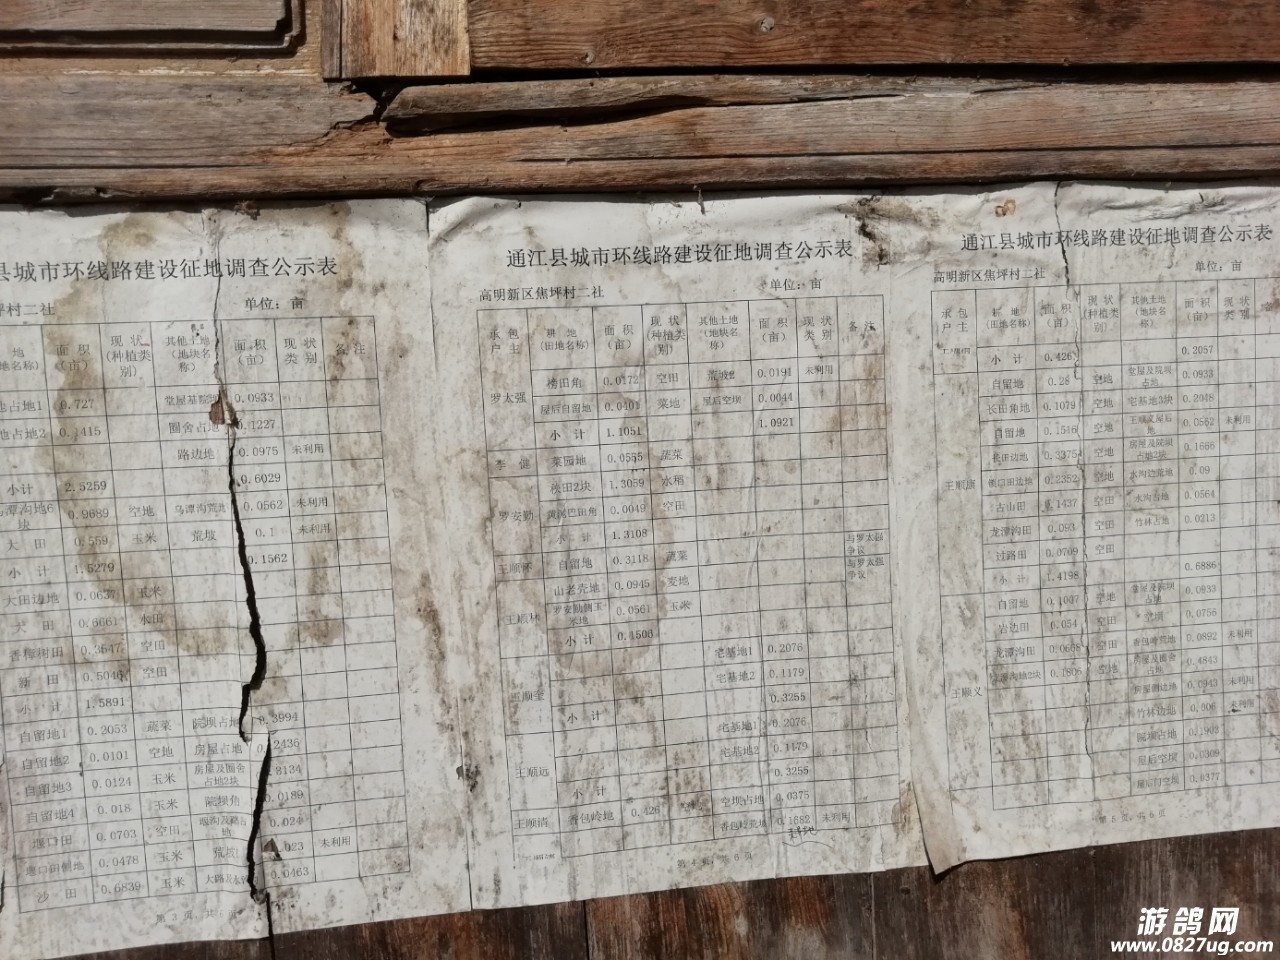 县城市环线路建设征地调查公示表
坪村二社 单位：亩
地 面积 现状 其他土地 面积 现状 备注
地名称) (亩) (种植类别) (地块名称) (亩) 类别
地占地1 0.727 堂屋基院坝 0.0933
地占地2 0.1415 圈舍占地 0.1227
路边地 0.0975 未利用
小计 2.5259 0.6029
乌潭沟地6块 0.9689 空地 乌潭沟荒地 0.0562 未利用
大田 0.559 玉米 荒坡 0.1 未利用
小计 1.5279 0.1562
大田边地 0.0637 玉米
大田 0.6661 水田
香樟树田 0.3547 空田
新田 0.5046 空田
小计 1.5891
自留地1 0.2053 蔬菜 院坝占地 0.3994
自留地2 0.0101 空地 房屋占地 2436
自留地3 0.0124 玉米 房屋及圈舍占地2块 8134
自留地4 0.018 玉米 院坝角 0.0189
堰口田 0.0703 空田 0.024
堰口田侧地 0.0478 玉米 荒坡 023 未利用
沙田 0.6839 玉米 大路及 0.0463
第 3 页，共 6 页
通江县城市环线路建设征地调查公示表
高明新区焦坪村二社 单位：亩
承包户主 耕地 面积 现状 其他土地 面积 现状 备注
(田地名称) (亩) (种植类别) (地块名称) (亩) 类别
罗太强 榜田角 0.0172 空田 荒坡2 0.0191 未利用
屋后自留地 0.0401 菜地 屋后空坝 0.0044
小计 1.1051 1.0921
李健 菜园地 0.0555 蔬菜
罗安勤 秧田2块 1.3059 水稻
黄泥巴田角 0.0049 空田
小计 1.3108
王顺怀 自留地 0.3118 蔬菜 与罗太强争议
王顺林 山老壳地 0.0945 麦地 与罗太强争议
罗安勤侧玉米地 0.0561 玉米
小计 0.1506
王顺奎 宅基地1 0.2076
宅基地2 0.1179
小计 0.3255
王顺远 宅基地1 0.2076
宅基地2 0.1179
小计 0.3255
王顺清 香包岭地 0.426 空坝占地 0.0375
香包岭荒地 0.1682 未利用
第 4 页，共 6 页
通江县城市环线路建设征地调查公示表
高明新区焦坪村二社 单位：亩
承包户主 耕地 面积 现状 其他土地 面积 现状
(田地名称) (亩) (种植类别) (地块名称) (亩) 类别
小计 0.426 0.2057
王顺康 自留地 0.28 空地 堂屋及院坝占地 0.0933
长田角地 0.1079 空地 宅基地3块 0.2048
自留地 0.1516 空地 王顺义屋后地 0.0562 未利用
长田边地 0.3375 空地 房屋及院坝占地2块 0.1666
堰口田边地 0.2352 空地 水沟边荒地 0.09
古山田 0.1437 空田 水沟占地 0.0564
龙潭沟田 0.093 空田 竹林占地 0.0213
过路田 0.0709 空田
小计 1.4198 0.6886
王顺义 自留地 0.1007 空地 堂屋及院坝占地 0.0933
岩边田 0.054 空田 空坝 0.0756
龙潭沟田 0.0668 空田 香包岭荒地 0.0892 未利用
0.1806 空地 房屋及圈舍占地 0.4843
房屋侧边地 0.0943 未利用
竹林边地 0.006 未利用
院坝占地 0.1903
屋后空坝 0.0309
屋后门空坝 0.0377
第 5 页，共 6 页
游鸽网
www.0827ug.com